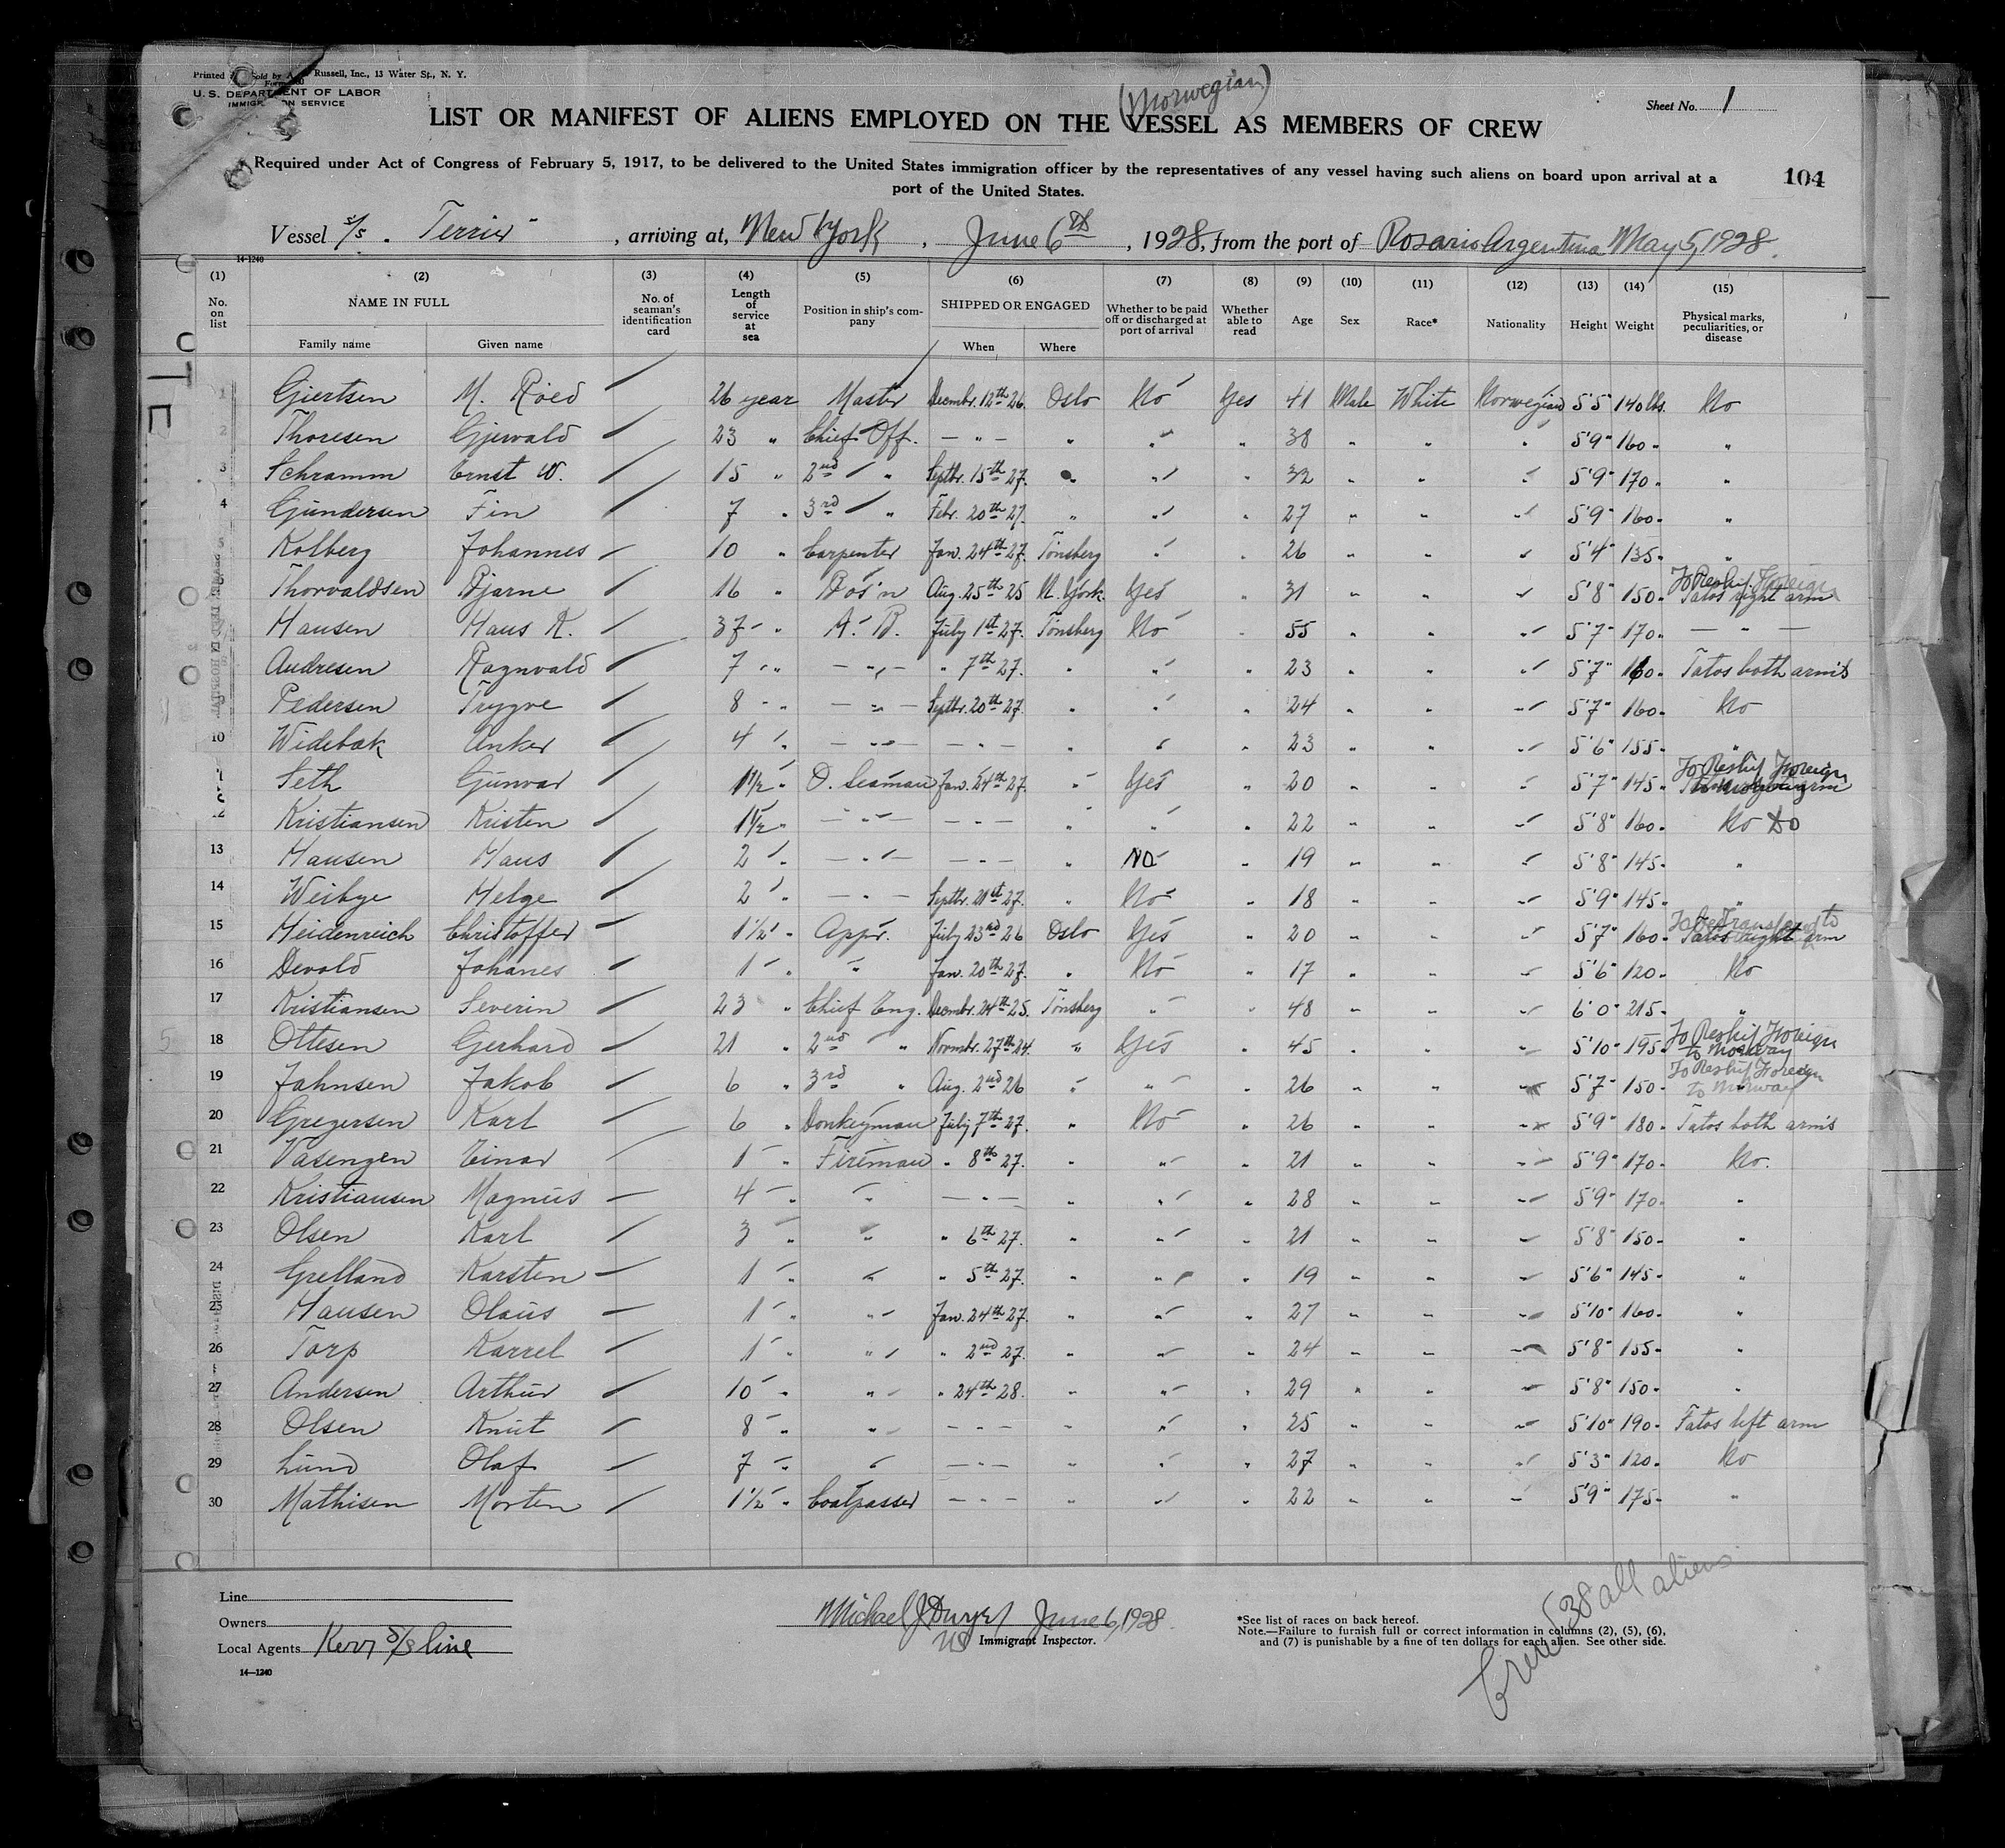 Printed Sold by Russell, Inc., 13 Water St., N. Y.
U. S. DEPARTMENT OF LABOR
IMMIGRATION SERVICE
(Norwegian)
Sheet No. 1
LIST OR MANIFEST OF ALIENS EMPLOYED ON THE VESSEL AS MEMBERS OF CREW
Required under Act of Congress of February 5, 1917, to be delivered to the United States immigration officer by the representatives of any vessel having such aliens on board upon arrival at a
port of the United States.
104
Vessel s/s. Terrier, arriving at, New York, June 6th, 1928, from the port of Rosario Argentina May 5, 1928.
14-1240
(1) (2) (3) (4) (5) (6) (7) (8) (9) (10) (11) (12) (13) (14) (15)
No. on list NAME IN FULL Family name Given name No. of seaman's identification card Length of service at sea Position in ship's company SHIPPED OR ENGAGED When Where Whether to be paid off or discharged at port of arrival Whether able to read Age Sex Race* Nationality Height Weight Physical marks, peculiarities, or disease
1 Gjertsen M. Röed 26 year Master Decmbr. 12th 26. Oslo No Yes 41 Male White Norwegian 5'5" 140 lbs. No
2 Thoresen Gjewald 23 " Chief Off. — " — " " " 38 " " " 5'9" 160 " "
3 Schramm Ernst W. 15 " 2nd " Septbr. 15th 27. " " " 32 " " " 5'9" 170 " "
4 Gundersen Fin 7 " 3rd " Febr. 20th 27. " " " 27 " " " 5'9" 160 " "
5 Kolberg Johannes 10 " Carpenter Jan. 24th 27. Tönsberg " " 26 " " " 5'4" 135 " "
Thorvaldsen Bjarne 16 " Bos'n Aug. 25th 25 N. York. Yes " 31 " " " 5'8" 150 " To Reship Foreign Tatos right arm
Hansen Hans K. 37 " A. B. July 1st 27. Tönsberg No " 55 " " " 5'7" 170 " — " —
Andresen Ragnvald 7 " — " — " 7th 27. " " " 23 " " " 5'7" 160 " Tatos both arms
Pedersen Trygve 8 " — " — Septbr. 20th 27. " " " 24 " " " 5'7" 160 " No
10 Widebæk Anker 4 " — " — — " — " " " 23 " " " 5'6" 155 " "
Seth Gunvar 1 1/2 " O. Seaman Jan. 24th 27. " Yes " 20 " " " 5'7" 145 " To Reship Foreign
12 Kristiansen Kristen 1 1/2 " — " — — " — " " " 22 " " " 5'8" 160 " No Do
13 Hansen Hans 2 " — " — — " — " NO " 19 " " " 5'8" 145 " "
14 Weibye Helge 2 " — " — Septbr. 21st 27. " No " 18 " " " 5'9" 145 " "
15 Heidenreich Christoffer 1 1/2 " Appr. July 23rd 26 Oslo Yes " 20 " " " 5'7" 160 " Tatos right arm
16 Devold Johanes 1 " " Jan. 20th 27. " No " 17 " " " 5'6" 120 " No
17 Kristiansen Severin 23 " Chief Eng. Decmbr. 24th 25. Tönsberg " " 48 " " " 6'0" 215 " "
18 Ottesen Gerhard 21 " 2nd " Novmbr. 27th 24. " Yes " 45 " " " 5'10" 195 " To Reship Foreign to Norway
19 Jahnsen Jakob 6 " 3rd " Aug. 2nd 26 " " " 26 " " " 5'7" 150 " To Reship Foreign to Norway
20 Gregersen Karl 6 " Donkeyman July 7th 27. " No " 26 " " " 5'9" 180 " Tatos both arms
21 Vasengen Einar 1 " Fireman " 8th 27. " " " 21 " " " 5'9" 170 " No.
22 Kristiansen Magnus 4 " " — " — " " " 28 " " " 5'9" 170 " "
23 Olsen Karl 3 " " " 6th 27. " " " 21 " " " 5'8" 150 " "
24 Grelland Karsten 1 " " " 5th 27. " " " 19 " " " 5'6" 145 " "
25 Hansen Olaus 1 " " Jan. 24th 27. " " " 27 " " " 5'10" 160 " "
26 Torp Karrel 1 " " " 2nd 27. " " " 24 " " " 5'8" 155 " "
27 Andersen Arthur 10 " " " 24th 28. " " " 29 " " " 5'8" 150 " "
28 Olsen Knut 8 " " — " — " " " 25 " " " 5'10" 190 " Tatos left arm
29 Lund Olaf 7 " " — " — " " " 27 " " " 5'3" 120 " No
30 Mathisen Morten 1 1/2 " Coalpasser — " — " " " 22 " " " 5'9" 175 " "
Crew 38 all aliens
Line
Owners
Local Agents Kerr S/S Line
14—1240
Michael J Dwyer June 6, 1928
US Immigrant Inspector.
*See list of races on back hereof.
Note.—Failure to furnish full or correct information in columns (2), (5), (6),
and (7) is punishable by a fine of ten dollars for each alien. See other side.